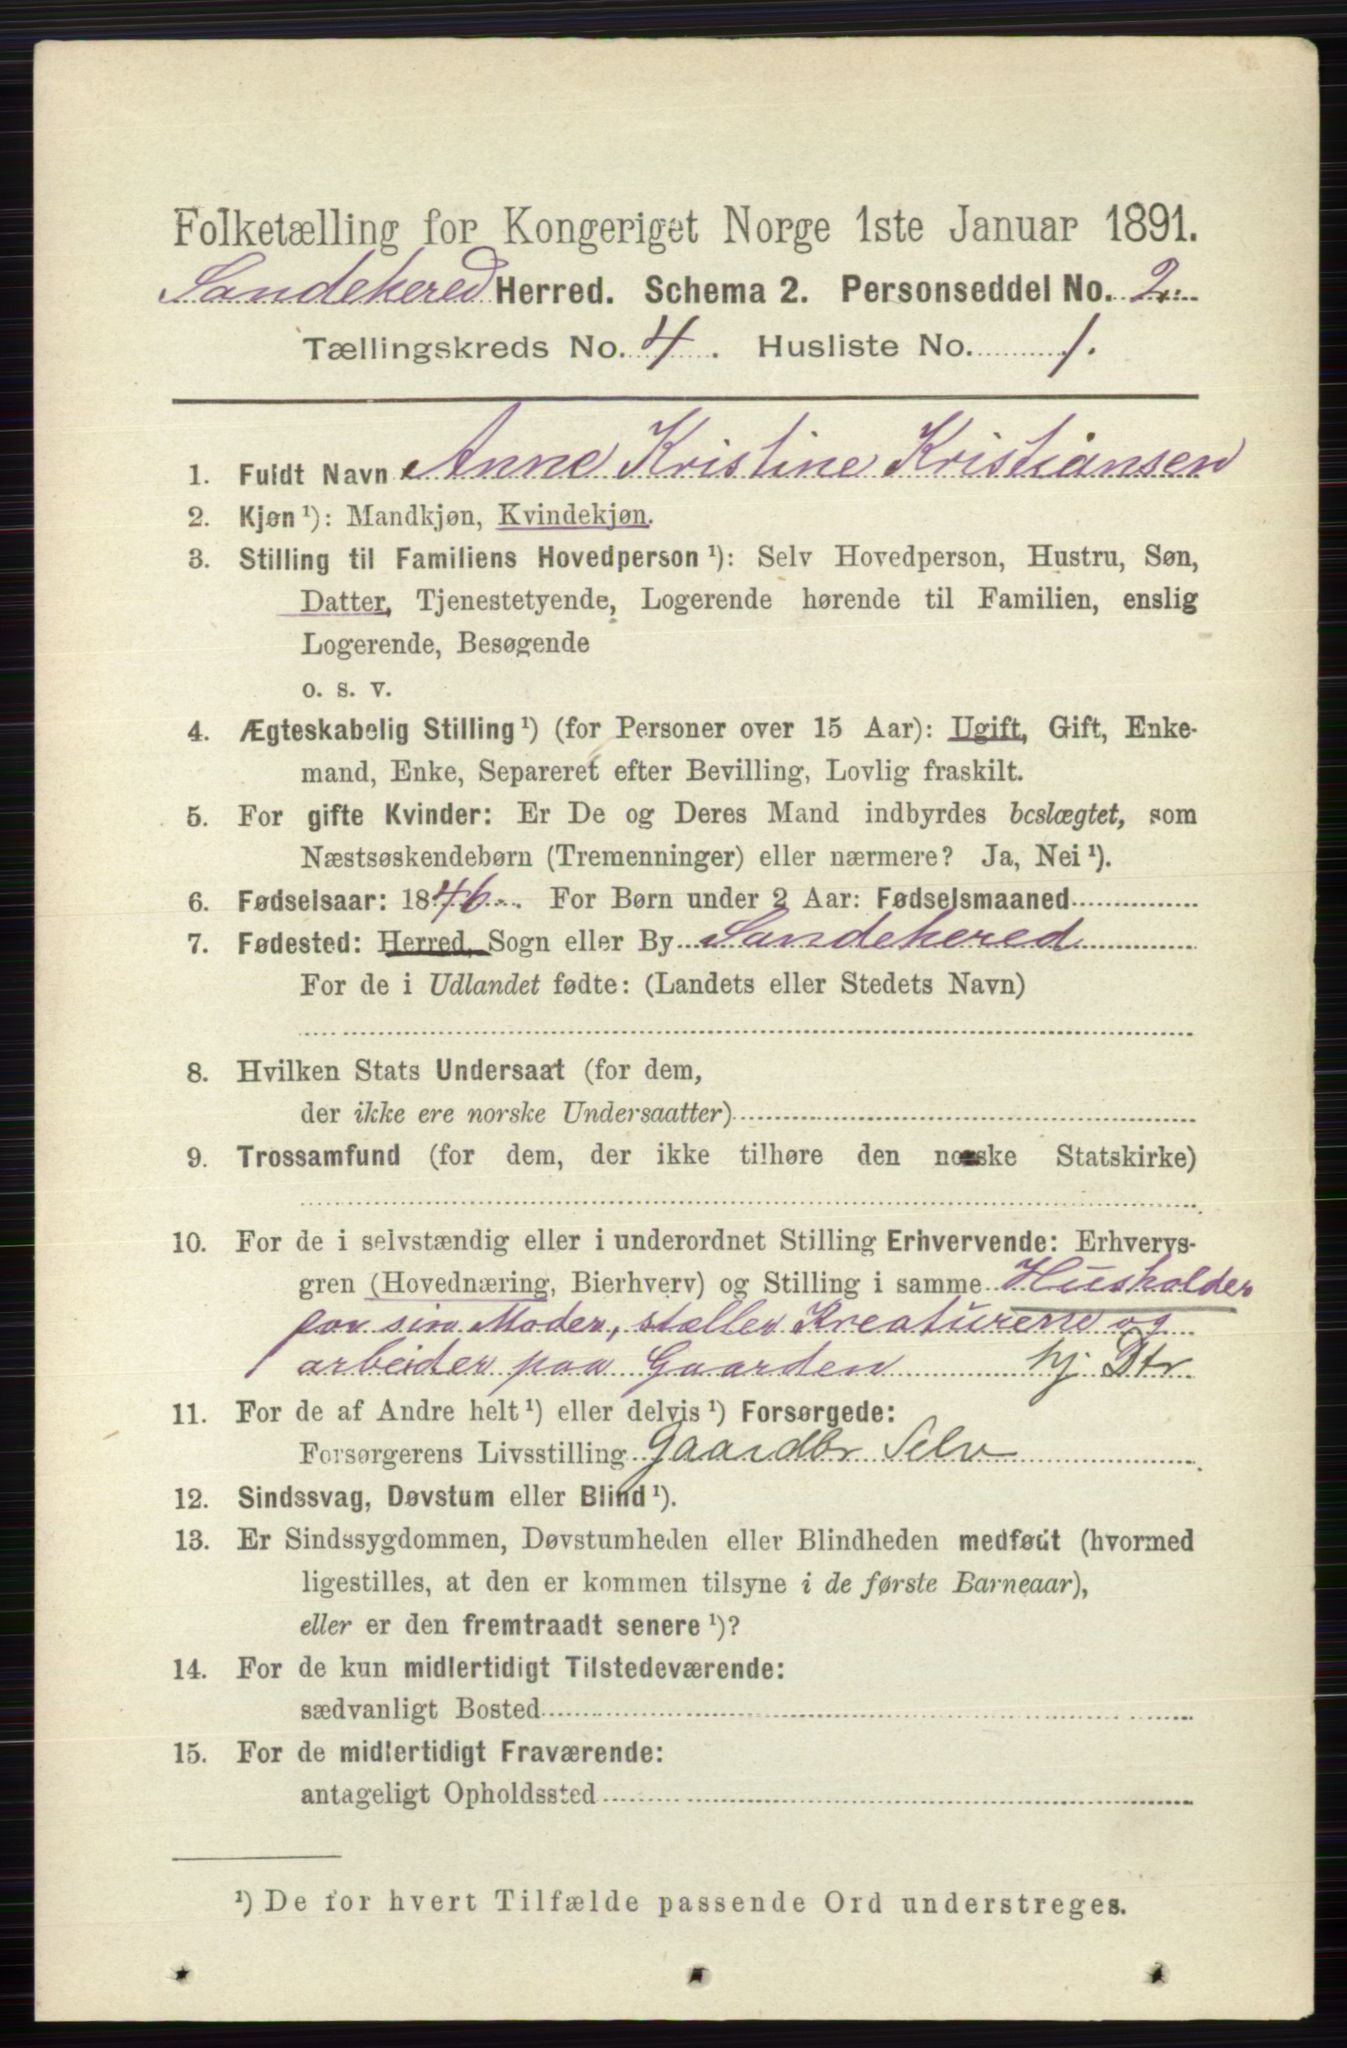 Folketælling for Kongeriget Norge 1ste Januar 1891.
Sandehered Herred. Schema 2. Personseddel No. 2.
Tællingskreds No. 4. Husliste No. 1.
1. Fuldt Navn Anne Kristine Kristiansen
2. Kjøn ¹): Mandkjøn, Kvindekjøn.
3. Stilling til Familiens Hovedperson ¹): Selv Hovedperson, Hustru, Søn,
Datter, Tjenestetyende, Logerende hørende til Familien, enslig
Logerende, Besøgende
o. s. v.
4. Ægteskabelig Stilling ¹) (for Personer over 15 Aar): Ugift, Gift, Enke-
mand, Enke, Separeret efter Bevilling, Lovlig fraskilt.
5. For gifte Kvinder: Er De og Deres Mand indbyrdes beslægtet, som
Næstsøskendebørn (Tremenninger) eller nærmere? Ja, Nei ¹).
6. Fødselsaar: 1846. For Børn under 2 Aar: Fødselsmaaned
7. Fødested: Herred, Sogn eller By Sandehered
For de i Udlandet fødte: (Landets eller Stedets Navn)
8. Hvilken Stats Undersaat (for dem,
der ikke ere norske Undersaatter)
9. Trossamfund (for dem, der ikke tilhøre den norske Statskirke)
10. For de i selvstændig eller i underordnet Stilling Erhvervende: Erhvervs-
gren (Hovednæring, Bierhverv) og Stilling i samme Husholder
for sin Moder, steller Kreaturene og
arbeider paa Gaarden hj. Dtr
11. For de af Andre helt ¹) eller delvis ¹) Forsørgede:
Forsørgerens Livsstilling Gaardbr Selv
12. Sindssvag, Døvstum eller Blind ¹).
13. Er Sindssygdommen, Døvstumheden eller Blindheden medfødt (hvormed
ligestilles, at den er kommen tilsyne i de første Barneaar),
eller er den fremtraadt senere ¹)?
14. For de kun midlertidigt Tilstedeværende:
sædvanligt Bosted
15. For de midlertidigt Fraværende:
antageligt Opholdssted
¹) De for hvert Tilfælde passende Ord understreges.